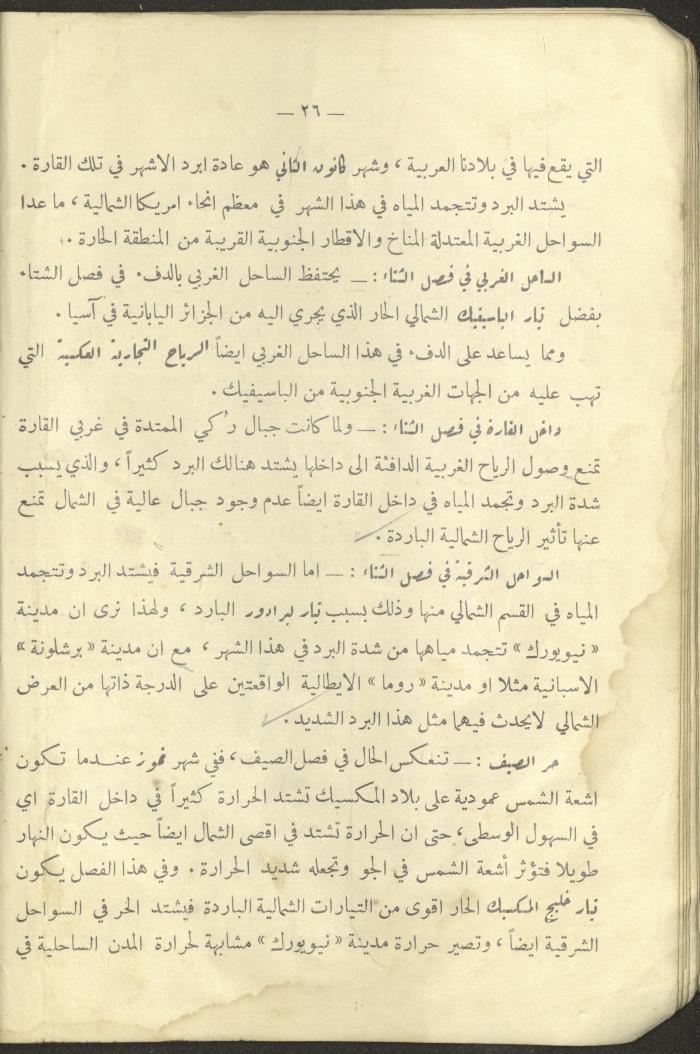 — ٢٦ —
التي يقع فيها في بلادنا العربية ، وشهر كانون الثاني هو عادة ابرد الاشهر في تلك القارة .
يشتد البرد وتتجمد المياه في هذا الشهر في معظم انحاء امريكا الشمالية ، ما عدا
السواحل الغربية المعتدلة المناخ والاقطار الجنوبية القريبة من المنطقة الحارة .
الساحل الغربي في فصل الشتاء : — يحتفظ الساحل الغربي بالدفء في فصل الشتاء
بفضل تيار الباسيفيك الشمالي الحار الذي يجري اليه من الجزائر اليابانية في آسيا .
ومما يساعد على الدفء في هذا الساحل الغربي ايضاً الرياح التجارية العكسية التي
تهب عليه من الجهات الغربية الجنوبية من الباسيفيك .
داخل القارة في فصل الشتاء : — ولما كانت جبال رُكي الممتدة في غربي القارة
تمنع وصول الرياح الغربية الدافئة الى داخلها يشتد هنالك البرد كثيراً ، والذي يسبب
شدة البرد وتجمد المياه في داخل القارة ايضاً عدم وجود جبال عالية في الشمال تمنع
عنها تأثير الرياح الشمالية الباردة .
السواحل الشرقية في فصل الشتاء : — اما السواحل الشرقية فيشتد البرد وتتجمد
المياه في القسم الشمالي منها وذلك بسبب تيار لبرادور البارد ، ولهذا نرى ان مدينة
« نيويورك » تتجمد مياهها من شدة البرد في هذا الشهر ، مع ان مدينة « برشلونة »
الاسبانية مثلا او مدينة « روما » الايطالية الواقعتين على الدرجة ذاتها من العرض
الشمالي لايحدث فيهما مثل هذا البرد الشديد .
حر الصيف : — تنعكس الحال في فصل الصيف ، ففي شهر تموز عندما تكون
اشعة الشمس عمودية على بلاد المكسيك تشتد الحرارة كثيراً في داخل القارة اي
في السهول الوسطى ، حتى ان الحرارة تشتد في اقصى الشمال ايضاً حيث يكون النهار
طويلا فتؤثر أشعة الشمس في الجو وتجعله شديد الحرارة . وفي هذا الفصل يكون
تيار خليج المكسيك الحار اقوى من التيارات الشمالية الباردة فيشتد الحر في السواحل
الشرقية ايضاً ، وتصير حرارة مدينة « نيويورك » مشابهة لحرارة المدن الساحلية في